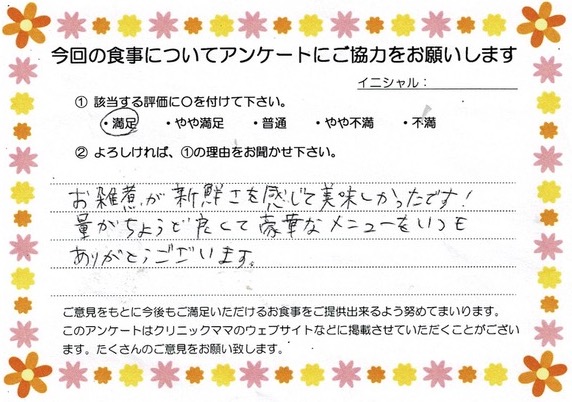 今回の食事についてアンケートにご協力をお願いします
イニシャル：
① 該当する評価に○を付けて下さい。
・満足 ・やや満足 ・普通 ・やや不満 ・不満
② よろしければ、①の理由をお聞かせ下さい。
お雑煮が新鮮さを感じて美味しかったです！
量がちょうど良くて豪華なメニューをいつも
ありがとうございます。
ご意見をもとに今後もご満足いただけるお食事をご提供出来るよう努めてまいります。
このアンケートはクリニックママのウェブサイトなどに掲載させていただくことがござい
ます。たくさんのご意見をお願い致します。